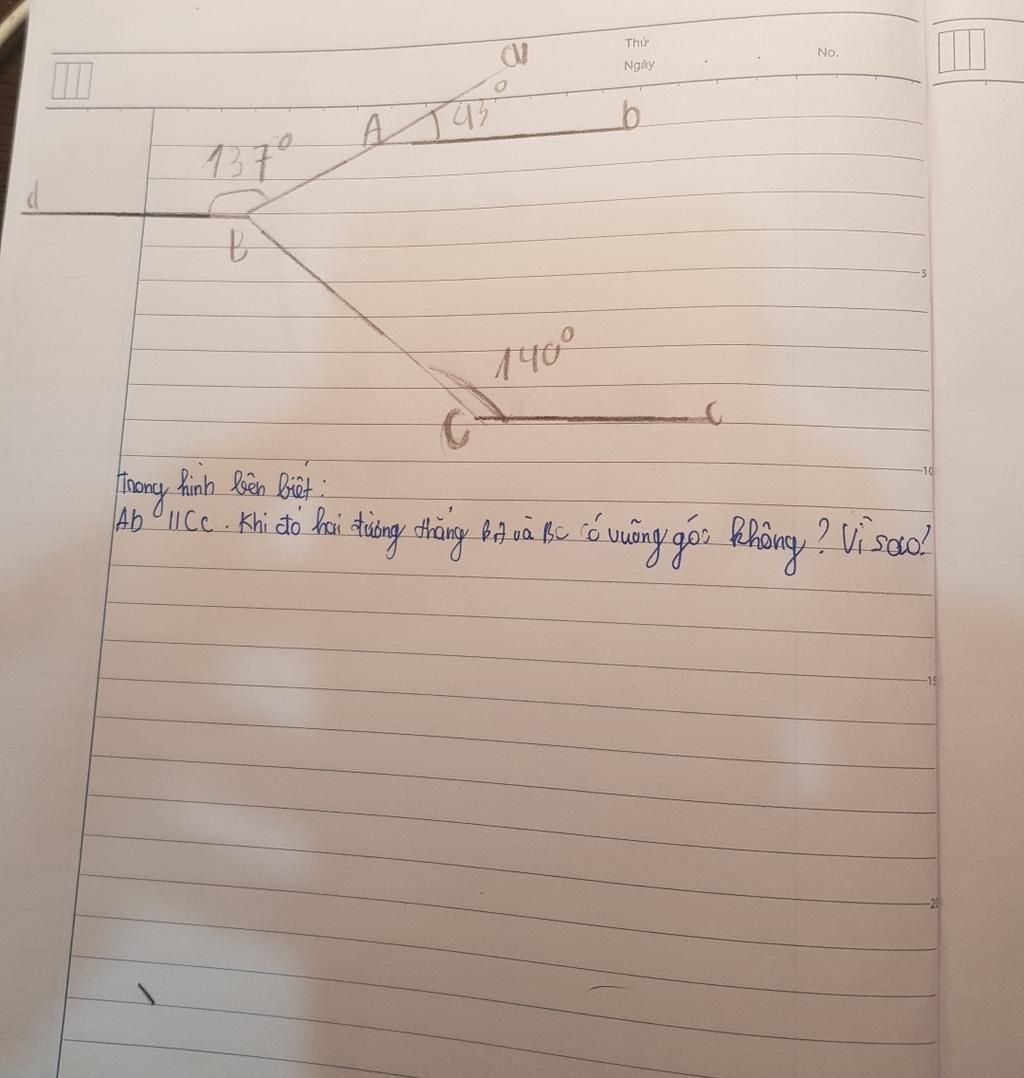 Thứ
Ngày
No.
a
43°
b
A
137°
d
B
5
140°
C
c
10
Trong hình bên biết:
Ab // Cc. Khi đó hai đường thẳng BA và BC có vuông góc không? Vì sao?
15
20